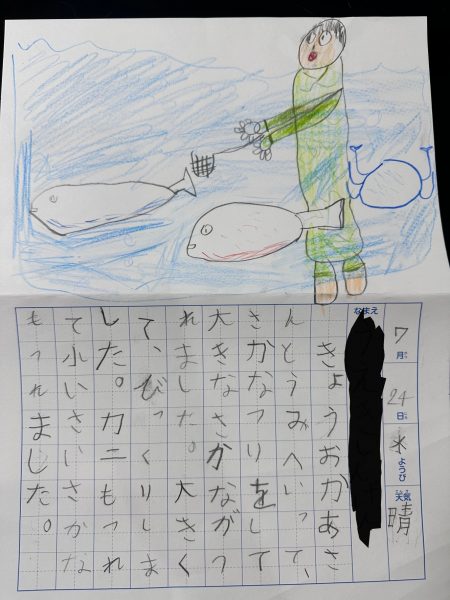 7月24日水ようび 天気 晴
なまえ
きょうおかあさ
んとうみへいって、
さかなつりをして
大きなさかながつ
れました。大きく
て、びっくりしま
した。カニもつれ
て小いさいさかな
もつれました。